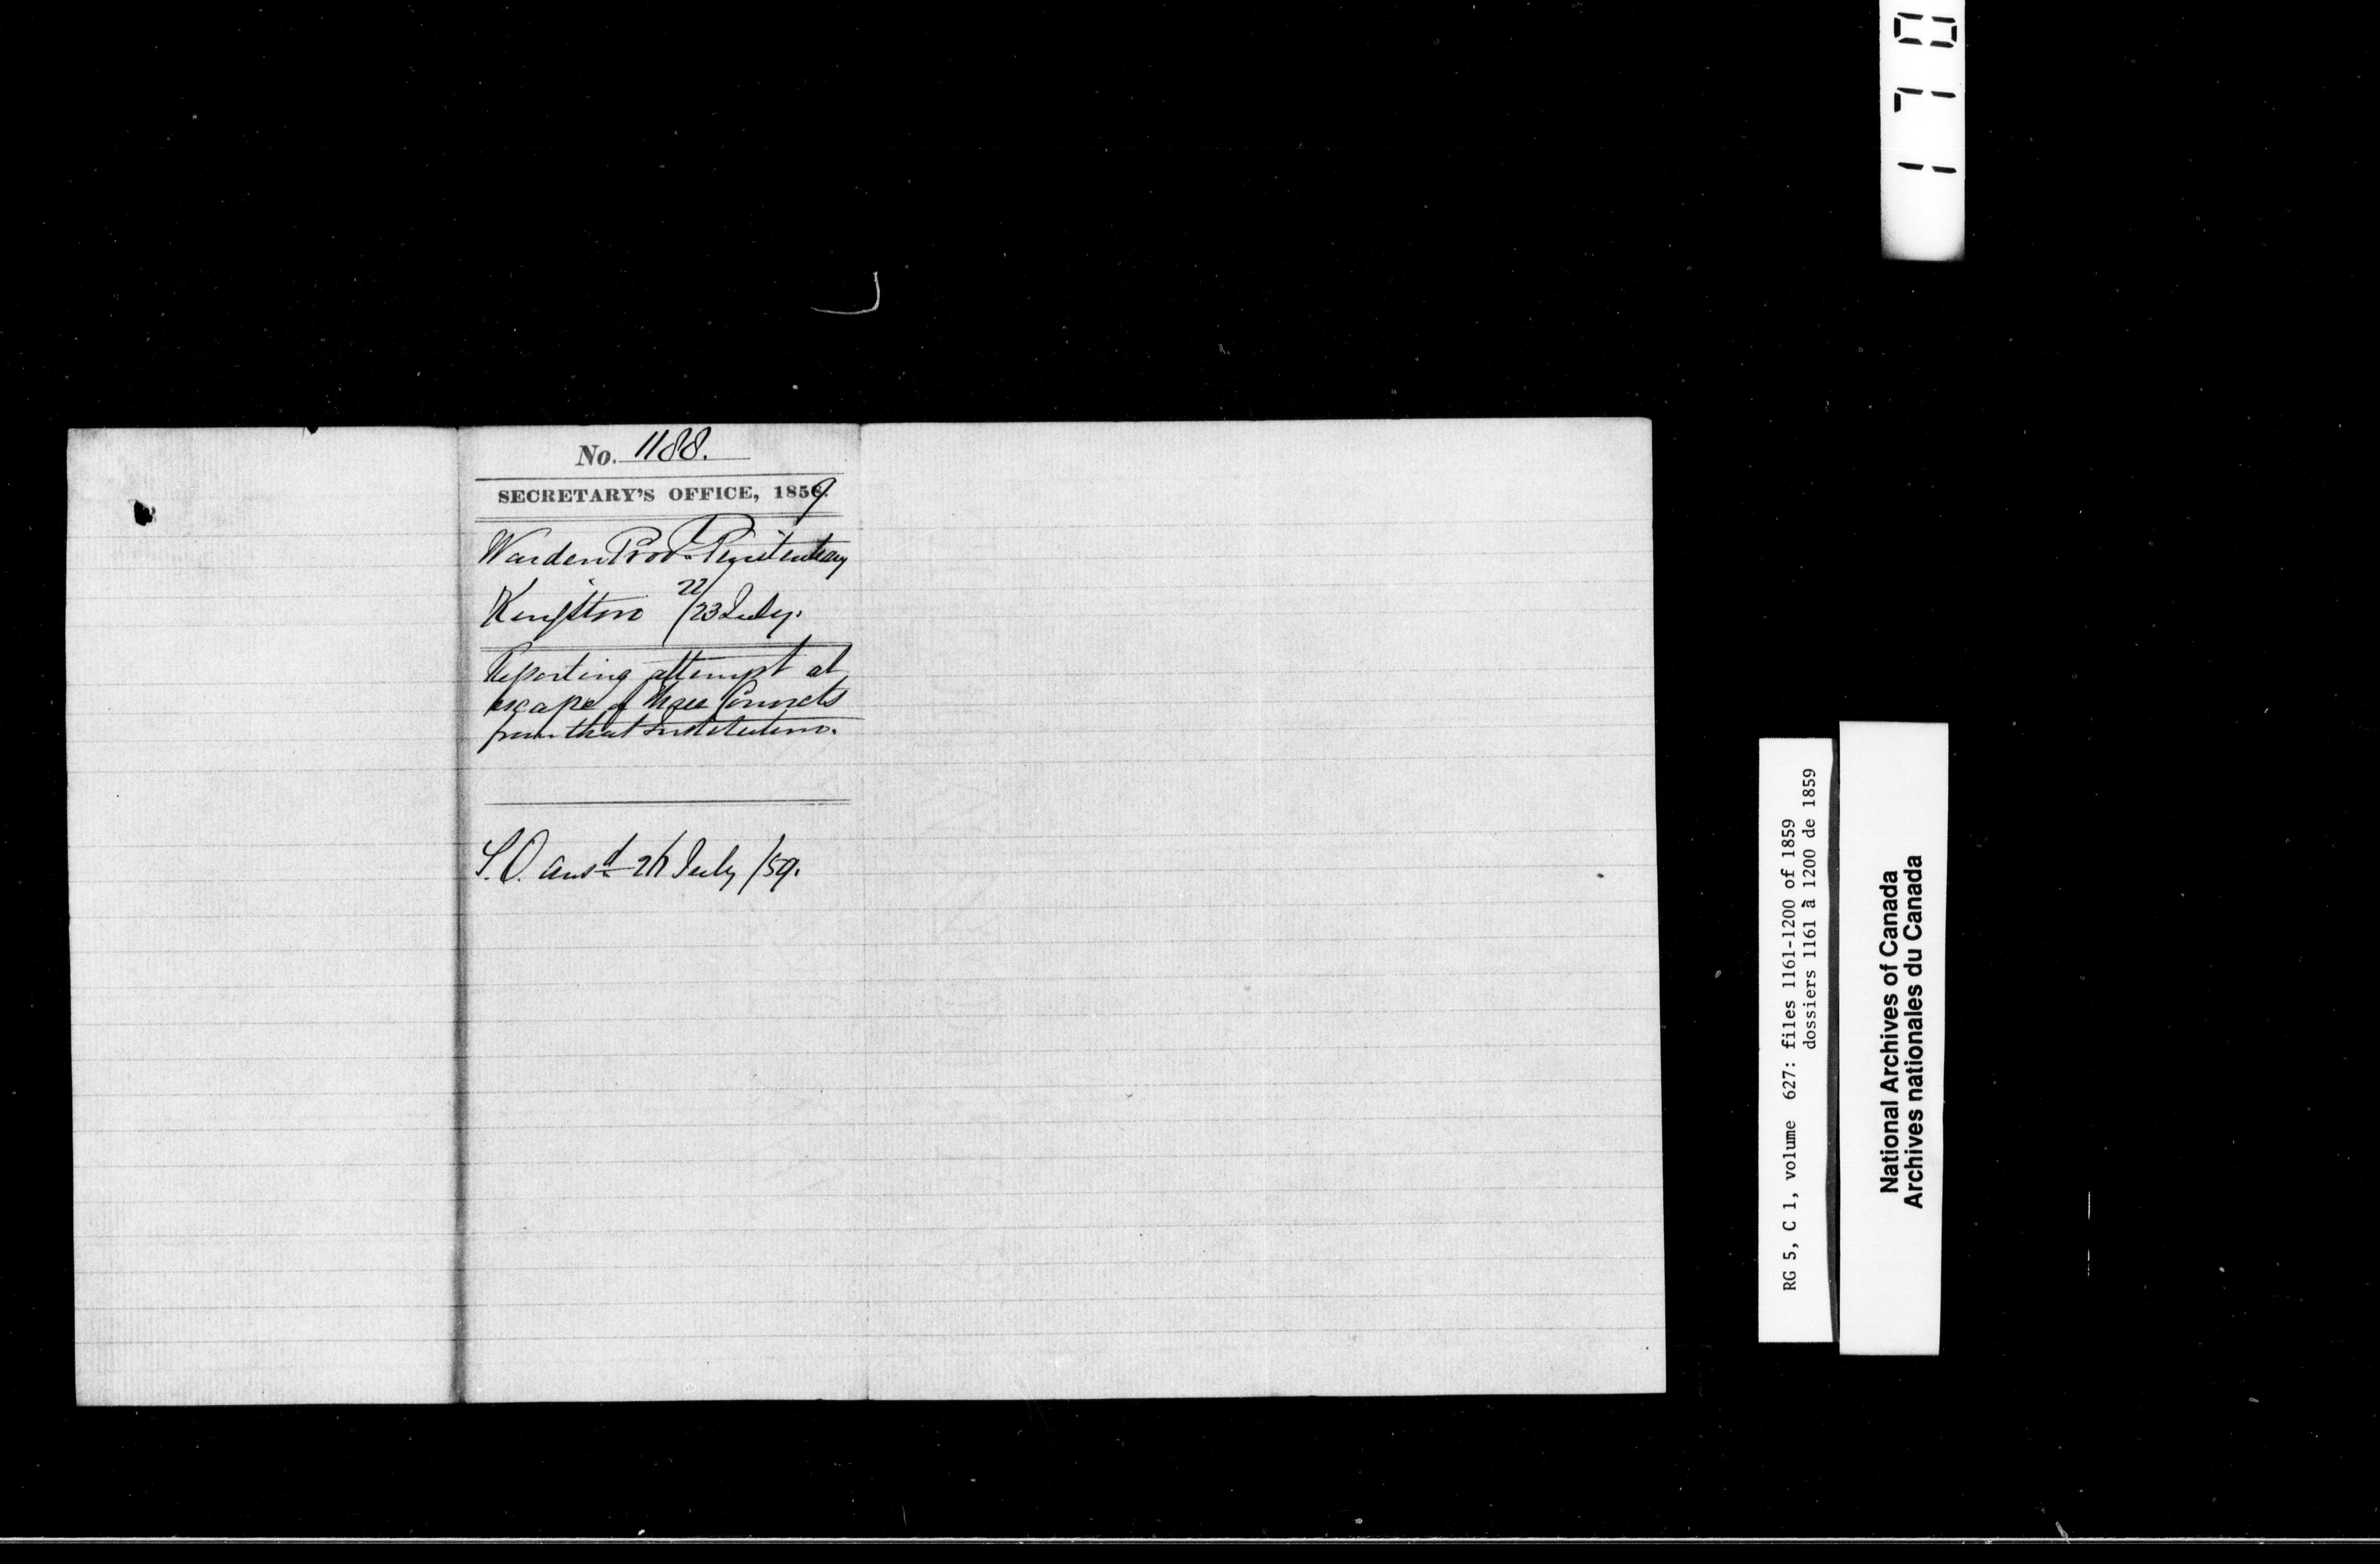 1710
No. 1188.
SECRETARY'S OFFICE, 1859.
Warden Prov. Penitentiary
Kingston 22/23 July.
Reporting attempt at
escape of three Convicts
from that Institution.
S.O. ansd July /59.
RG 5, C 1, volume 627: files 1161-1200 of 1859
dossiers 1161 à 1200 de 1859
National Archives of Canada
Archives nationales du Canada